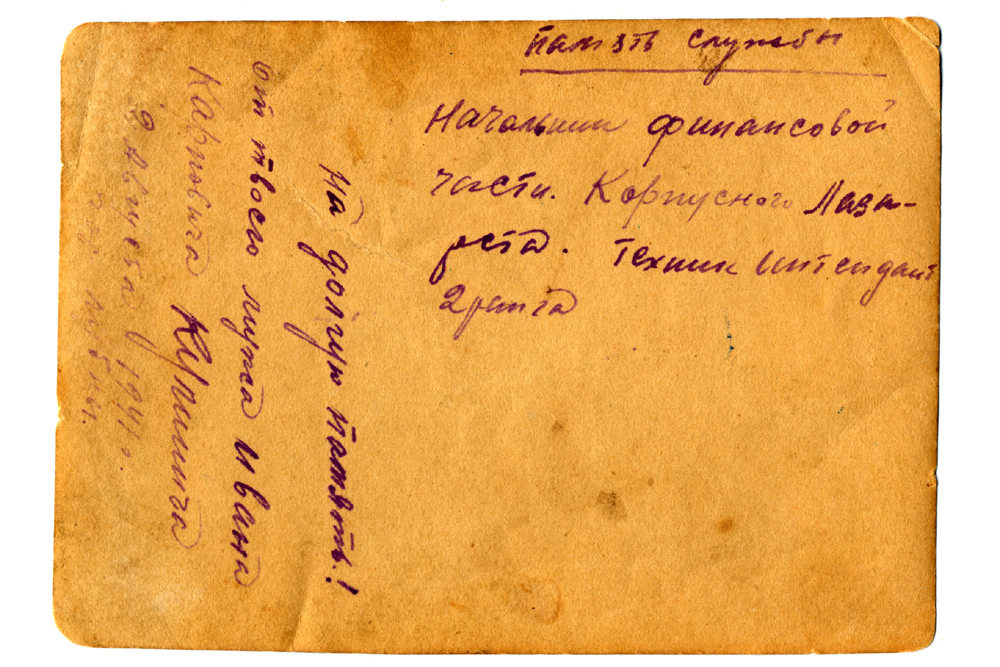 Память службы
Начальник финансовой
части. Корпусного Лаза-
рета. Техник Интендант
2 ранга
На долгую память!
от твоего мужа Ивана
Карповича
9 Августа 1941 г.